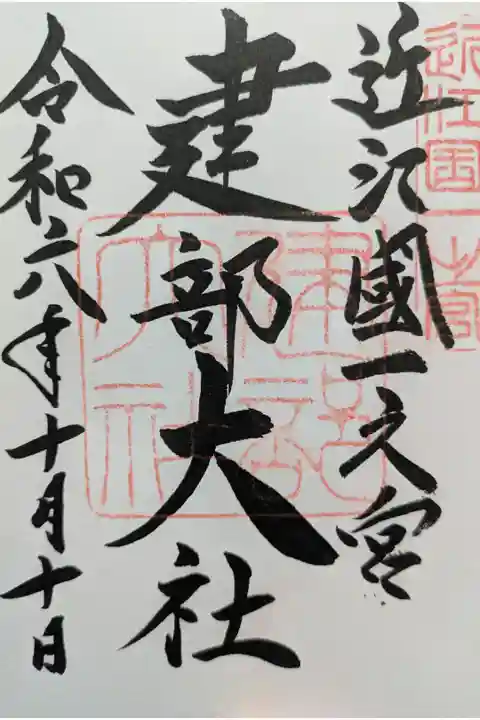 近江國一之宮
建部大社
令和六年十月十日
近江國一之宮
建部大社